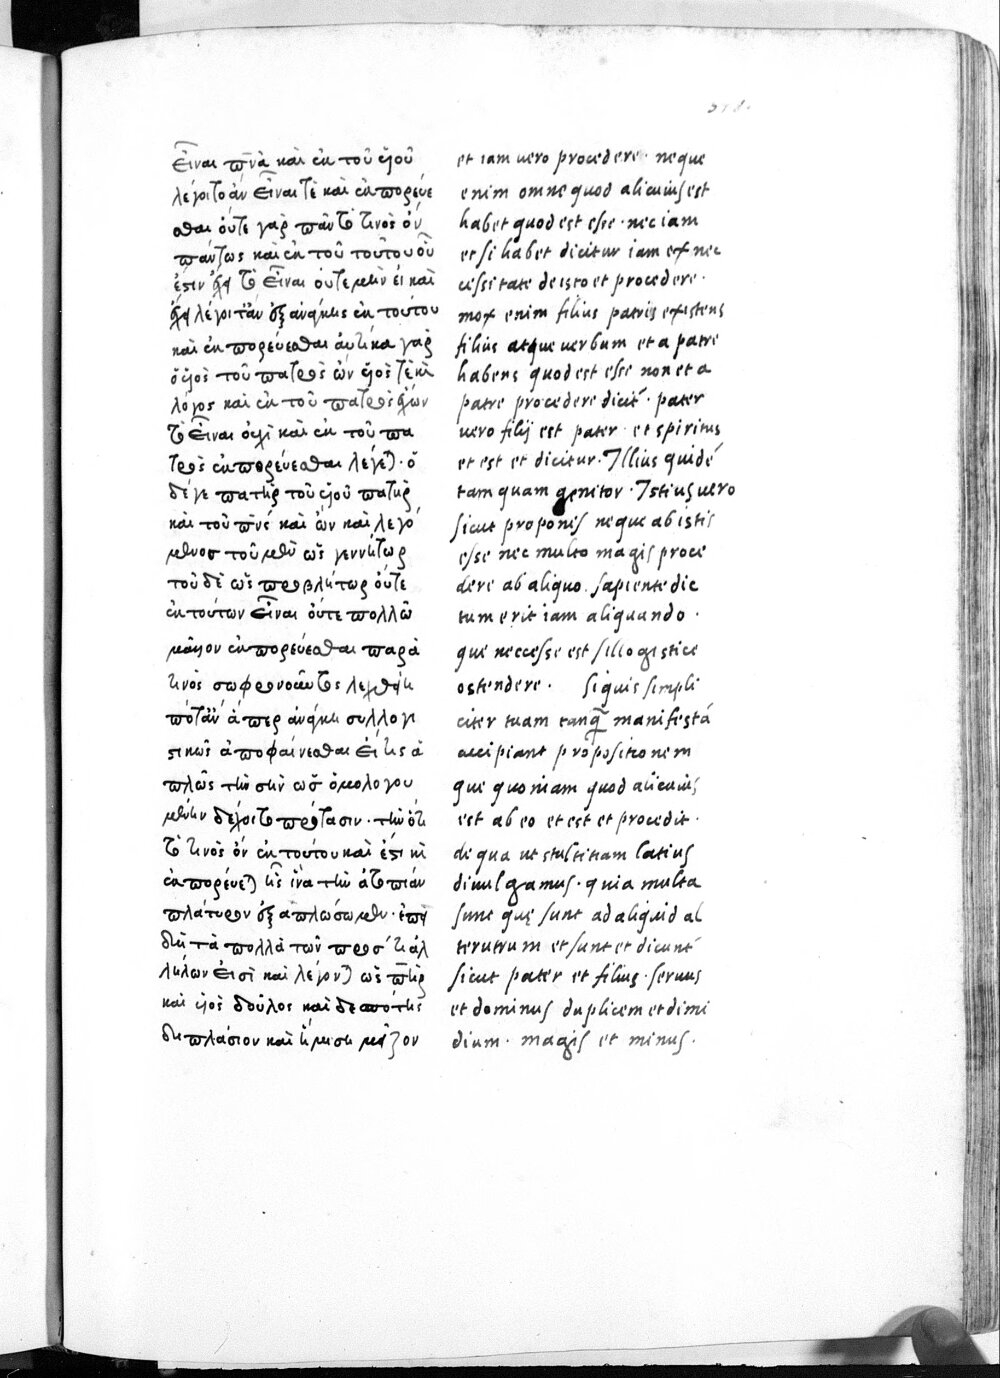 εἶναι πν̅α καὶ ἐκ τοῦ υἱοῦ
λέγοιτο ἂν εἶναί τε καὶ ἐκπορεύε
σθαι οὔτε γὰρ πᾶν τό τινος ὂν
πάντως καὶ ἐκ τοῦ τούτου οὗ
ἐστιν ἔχει τὸ εἶναι οὔτε μὴν εἰ καὶ
ἔχει λέγοιτ' ἂν ἐξ ἀνάγκης ἐκ τούτου
καὶ ἐκπορεύεσθαι αὐτίκα γὰρ
ὁ υἱὸς τοῦ πατρὸς ὢν υἱός τε καὶ
λόγος καὶ ἐκ τοῦ πατρὸς ἔχων
τὸ εἶναι οὐχὶ καὶ ἐκ τοῦ πα
τρὸς ἐκπορεύεσθαι λέγεται· ὁ
δέ γε πατὴρ τοῦ υἱοῦ πατὴρ
καὶ τοῦ πνς καὶ ὢν καὶ λεγό
μενος τοῦ μὲν ὡς γεννήτωρ
τοῦ δὲ ὡς προβλήτωρ οὔτε
ἐκ τούτων εἶναι οὔτε πολλῶ
μᾶλλον ἐκπορεύεσθαι παρά
τινος σωφρονοῦντος λεχθείη
ποτ' ἂν ἅπερ ἀνάγκη συλλογι
στικῶς ἀποφαίνεσθαι εἴ τις ἁ
πλῶς τὴν σὴν ὡς ὁμολογου
μένην δέχοιτο πρότασιν· τὴν ὅτι
τό τινος ὂν ἐκ τούτου καὶ ἔστι καὶ
ἐκπορεύεται ἧς ἵνα τὴν ἀτοπίαν
πλάτυρον ἐξαπλώσωμεν· ἐπεὶ
δὴ τὰ πολλὰ τῶν πρός τι ἀλ
λήλων εἰσὶ καὶ λέγονται ὡς πηρ
καὶ υἱὸς δοῦλος καὶ δεσπότης
διπλάσιον καὶ ἥμισυ μεῖζον
et iam uero procedere · neque
enim omne quod alicuius est
habet quod est esse · nec iam
et si habet dicitur iam ex nec
cessitate de isto et procedere ·
mox enim filius patris existens
filius atque uerbum et a patre
habens quod est esse non et a
patre procedere dicit̄ · pater
uero filij est pater · et spiritus
et est et dicitur · Illius quidē
tamquam genitor · Istius uero
sicut proponis neque ab istis
esse nec multo magis proce
dere ab aliquo sapiente dic
tum erit iam aliquando ·
que neccesse est sillogistice
ostendere · Si quis simpli
citer tuam tanq̄ manifestā
accipiant propositionem
que quoniam quod alicuius
est ab eo et est et procedit ·
de qua ut stultitiam latius
diuulgamus · quia multa
sunt quę sunt ad aliquid al
terutrum et sunt et dicunt̄
sicut pater et filius · seruus
et dominus duplicem et dimi
dium · magis et minus ·